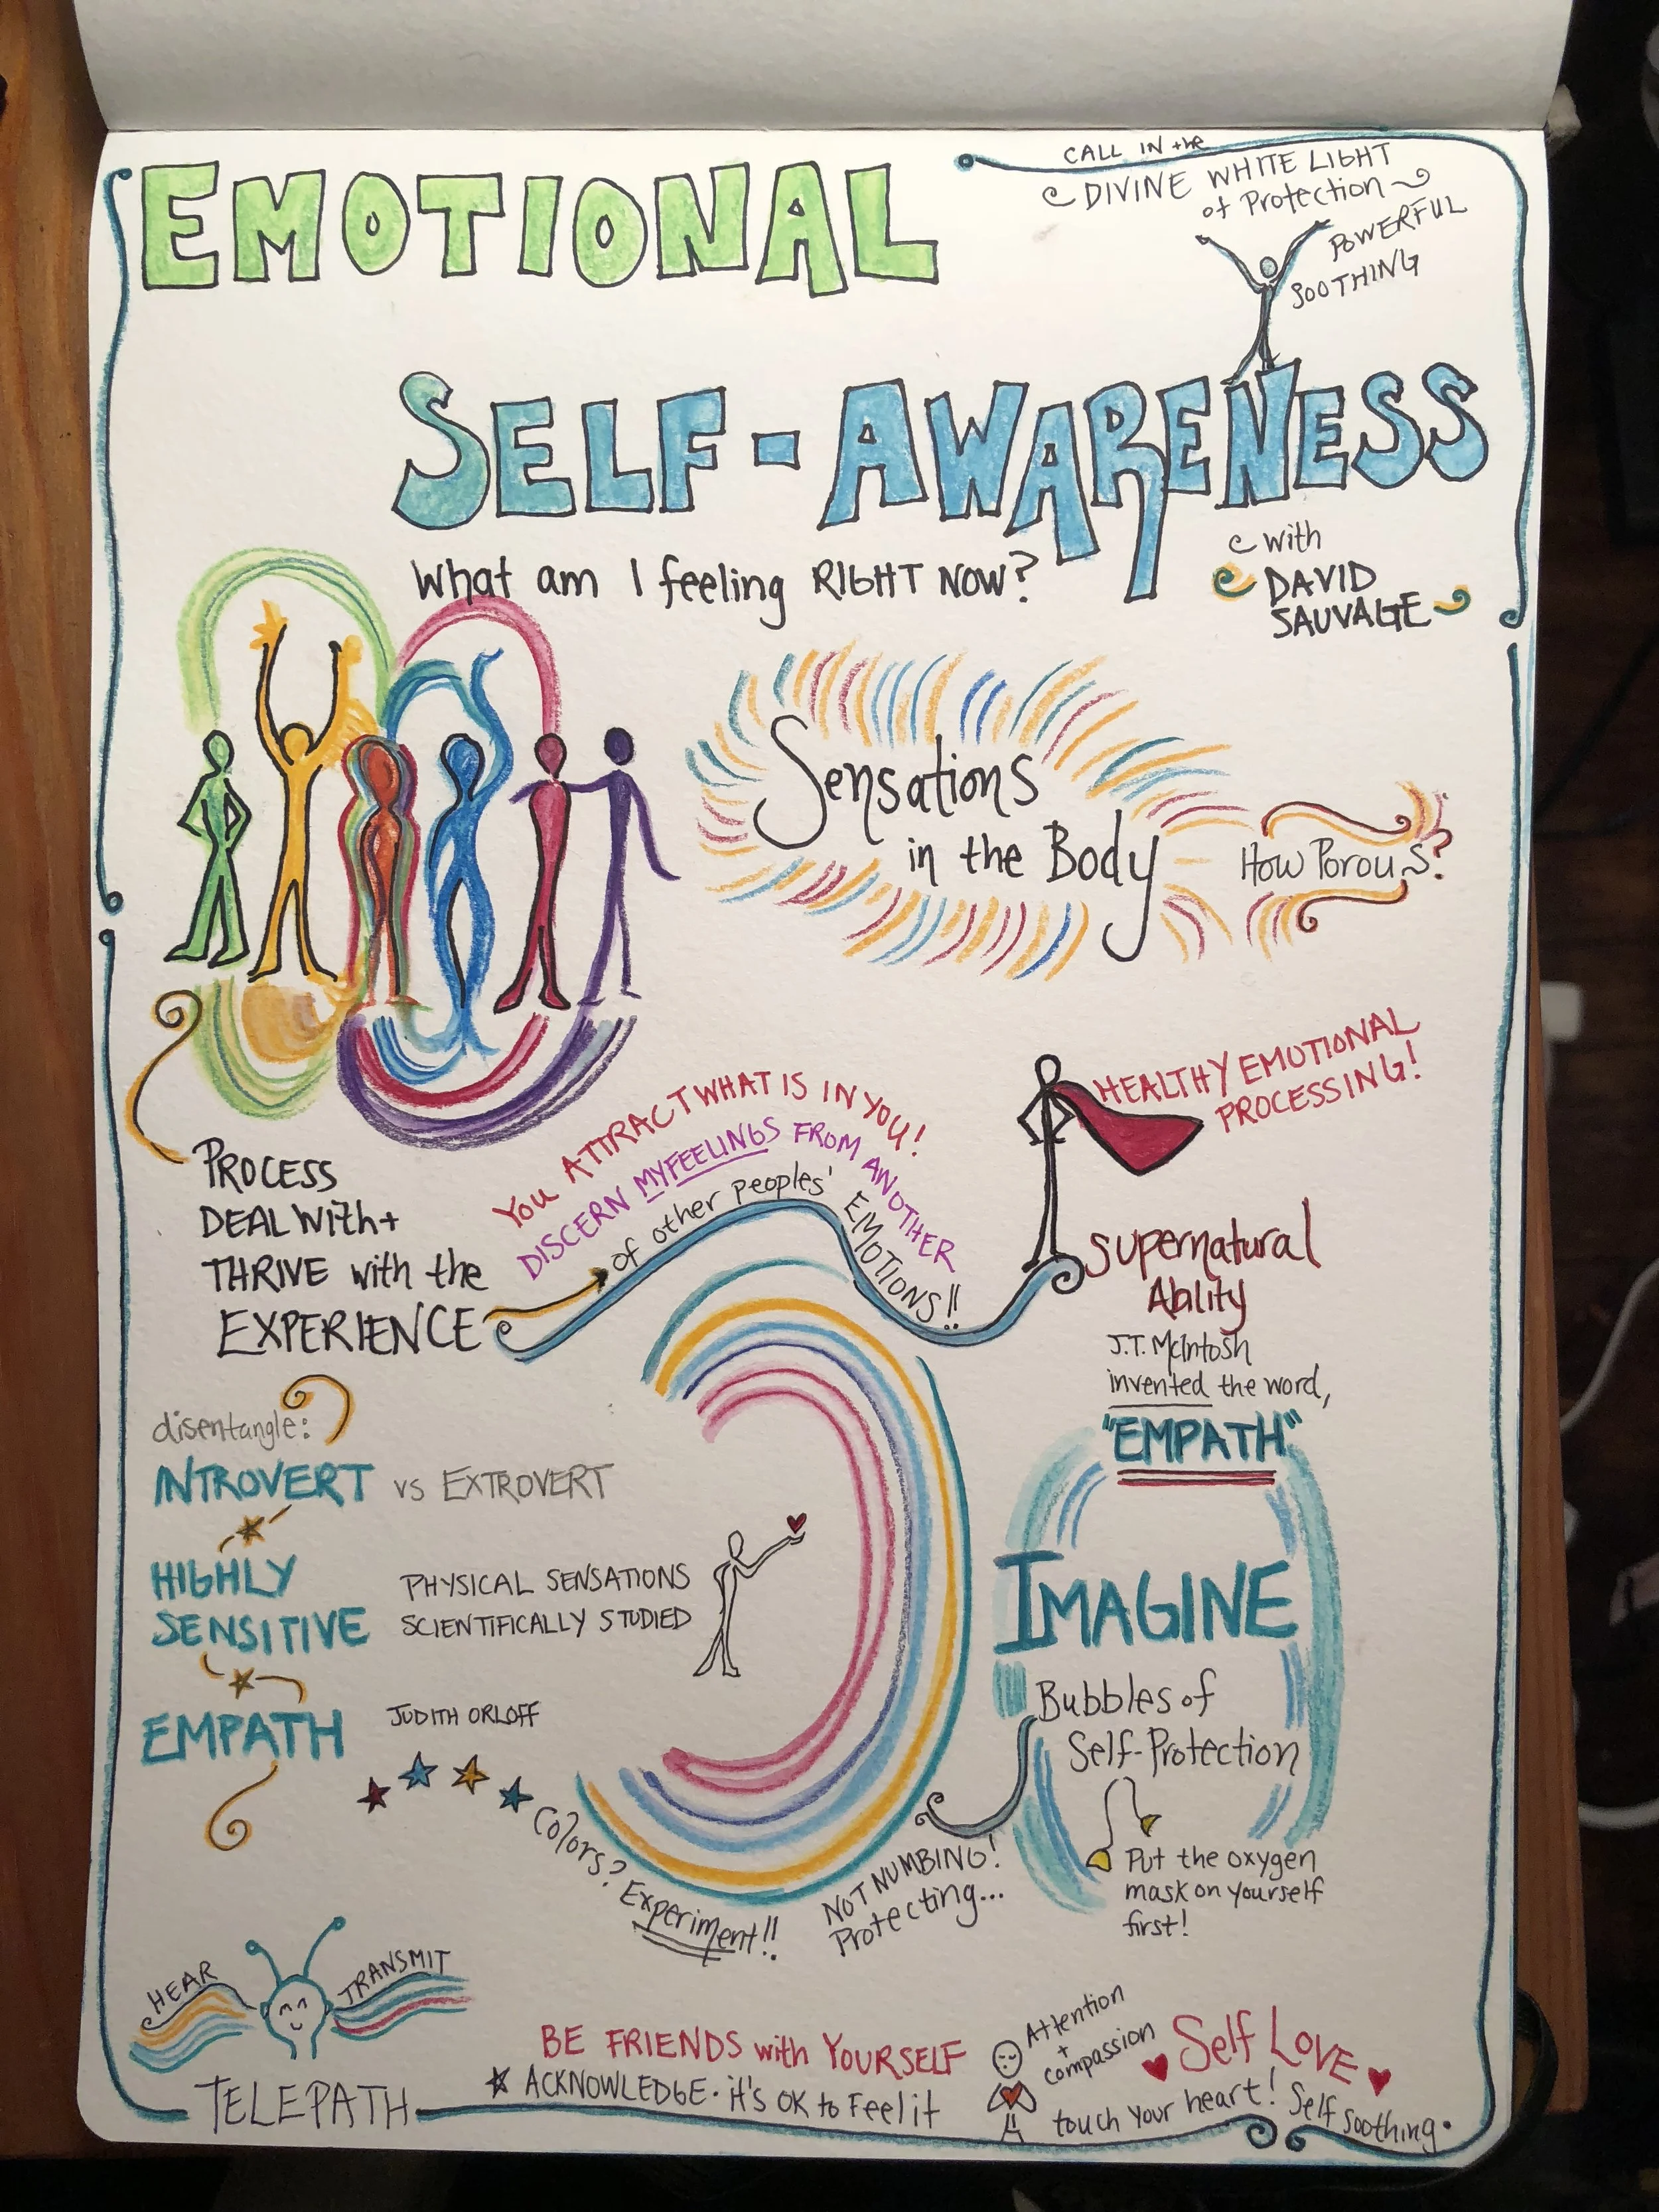 EMOTIONAL
CALL IN the
DIVINE WHITE LIGHT
of Protection
POWERFUL
SOOTHING
SELF-AWARENESS
What am I feeling RIGHT NOW?
with
DAVID
SAUVAGE
Sensations
in the Body
How Porous?
HEALTHY EMOTIONAL
PROCESSING!
YOU ATTRACT WHAT IS IN YOU!
DISCERN MY FEELINGS FROM ANOTHER
of other peoples' EMOTIONS!!
PROCESS
DEAL With +
THRIVE with the
EXPERIENCE
Supernatural
Ability
J.T. McIntosh
invented the word,
"EMPATH"
disentangle:
INTROVERT vs EXTROVERT
HIGHLY
SENSITIVE
PHYSICAL SENSATIONS
SCIENTIFICALLY STUDIED
EMPATH
JUDITH ORLOFF
IMAGINE
Bubbles of
Self-Protection
Colors? Experiment!!
NOT NUMBING!
Protecting...
Put the oxygen
mask on yourself
first!
HEAR
TRANSMIT
TELEPATH
BE FRIENDS with YOURSELF
ACKNOWLEDGE • it's OK to Feel it
Attention
+
compassion
Self LOVE
touch your heart! Self Soothing.